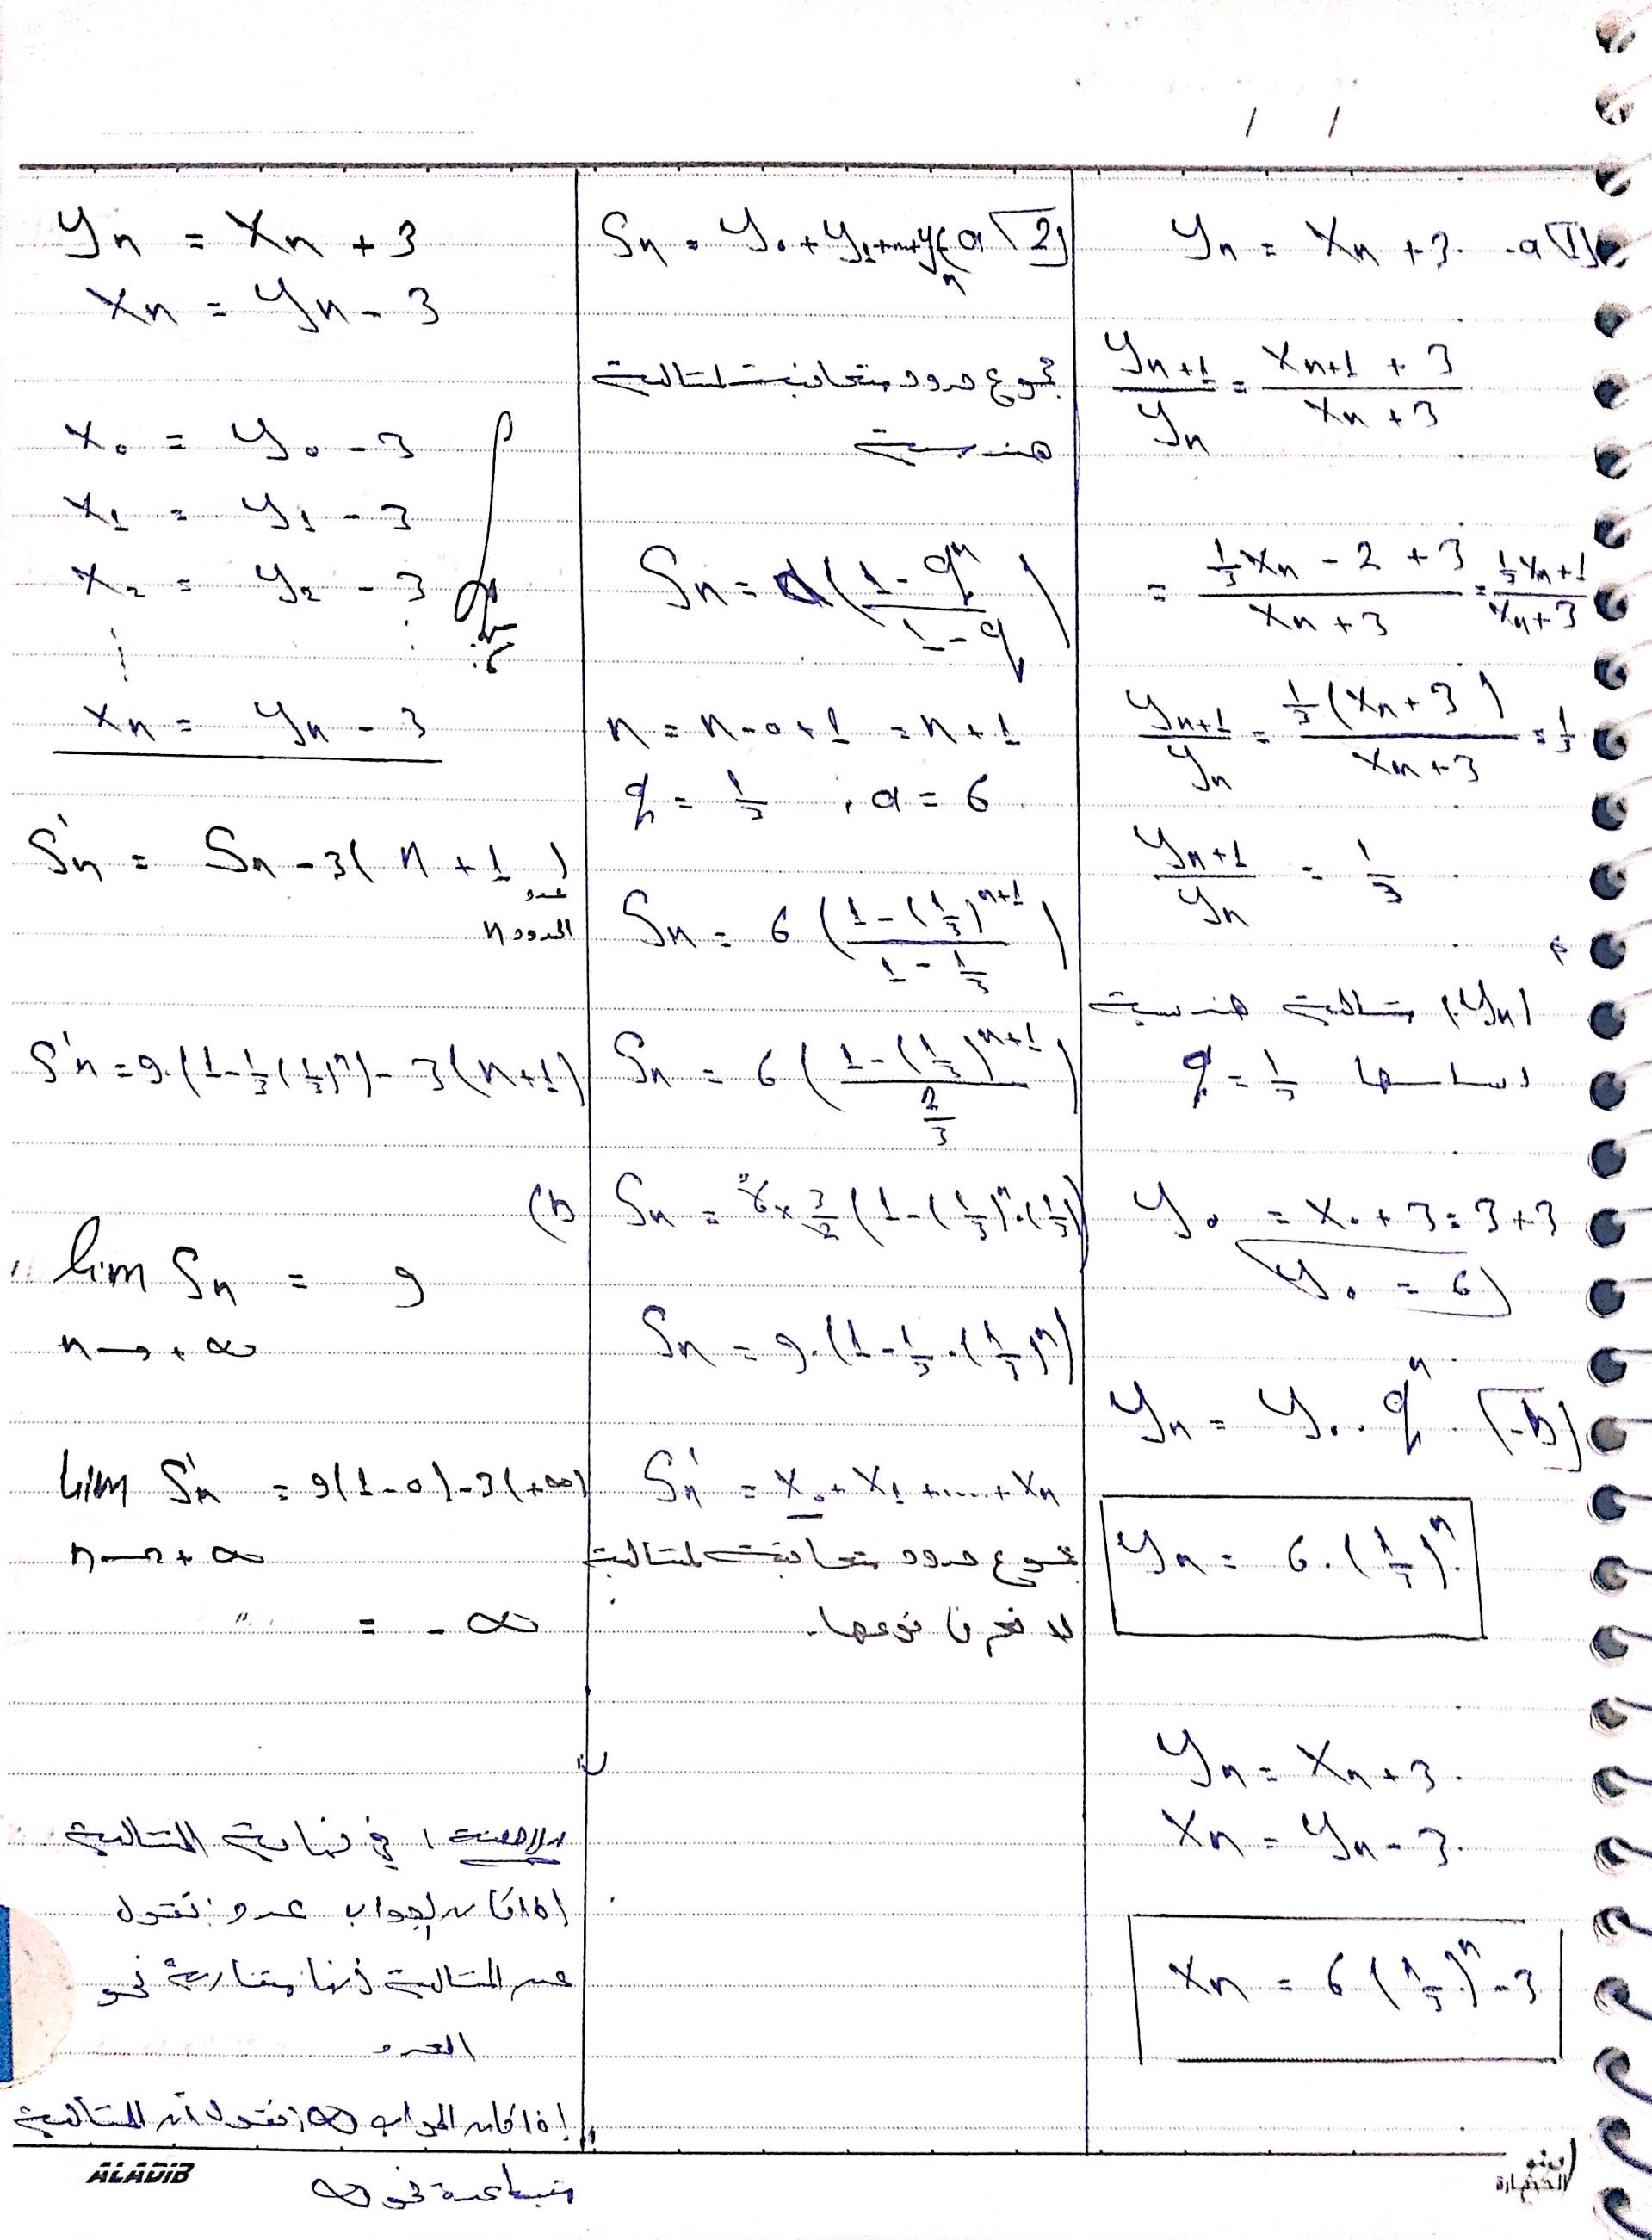 / /
yₙ = xₙ + 3 -a [1]
yₙ₊₁/yₙ = (xₙ₊₁ + 3)/(xₙ + 3)
= (1/3 xₙ - 2 + 3)/(xₙ + 3) = (1/3 xₙ + 1)/(xₙ + 3)
yₙ₊₁/yₙ = (1/3 (xₙ + 3))/(xₙ + 3) = 1/3
yₙ₊₁/yₙ = 1/3
(yₙ) متتالية هندسية
اساسها q = 1/3
y₀ = x₀ + 3 = 3 + 3
y₀ = 6
yₙ = y₀ . qⁿ [-b]
yₙ = 6 . (1/3)ⁿ
yₙ = xₙ + 3
xₙ = yₙ - 3
xₙ = 6 (1/3)ⁿ - 3
Sₙ = y₀ + y₁ + ... + yₙ (a [2]
مجموع حدود متعاقبة لمتتالية
هندسية
Sₙ = a ((1 - qⁿ)/(1 - q))
n = n - 0 + 1 = n + 1
q = 1/3 , a = 6
Sₙ = 6 ((1 - (1/3)ⁿ⁺¹)/(1 - 1/3))
Sₙ = 6 ((1 - (1/3)ⁿ⁺¹)/(2/3))
Sₙ = 6 × 3/2 (1 - (1/3)ⁿ . (1/3))
Sₙ = 9 . (1 - 1/3 . (1/3)ⁿ)
S'ₙ = x₀ + x₁ + .... + xₙ
مجموع حدود متعاقبة لمتتالية
لا نعرف نوعها.
yₙ = xₙ + 3
xₙ = yₙ - 3
x₀ = y₀ - 3
x₁ = y₁ - 3
x₂ = y₂ - 3
xₙ = yₙ - 3
S'ₙ = Sₙ - 3(n + 1)
عدد
الحدود n
S'ₙ = 9 . (1 - 1/3 (1/3)ⁿ) - 3(n + 1)
(b
lim Sₙ = 9
n → +∞
lim S'ₙ = 9(1 - 0) - 3(+∞)
n → +∞
= -∞
ملاحظة : في نهاية المتتالية
إذا كان الجواب عدد : نقول
عن المتتالية أنها متقاربة نحو
العدد
إذا كان الجواب ∞ : نقول أن المتتالية
متباعدة نحو ∞
ALADIB